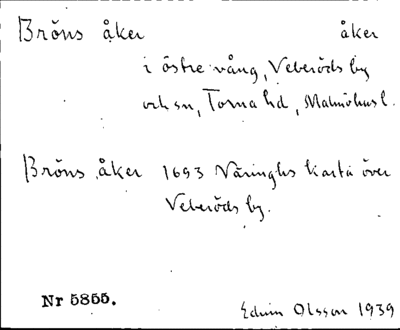 Bröns åker åker
i östre vång, Veberöds by
och sn, Torna hd, Malmöhus l.
Bröns åker 1693 Våringhs karta över
Veberöds by.
Nr 5855.
Edvin Olsson 1939